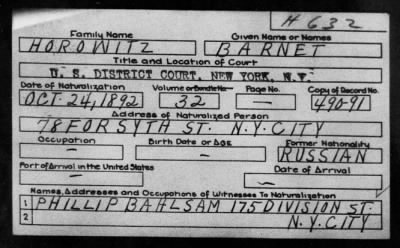 H 632
Family Name Given Name or Names
HOROWITZ BARNET
Title and Location of Court
U. S. DISTRICT COURT, NEW YORK, N.Y.
Date of Naturalization Volume or Bundle No. Page No. Copy of Record No.
OCT. 24, 1892 32 — 490-91
Address of Naturalized Person
78 FORSYTH ST. N.Y. CITY
Occupation Birth Date or Age Former Nationality
— — RUSSIAN
Port of Arrival in the United States Date of Arrival
— —
Names, Addresses and Occupations of Witnesses To Naturalization
1 PHILLIP BAHLSAM 175 DIVISION ST.
2 N.Y. CITY